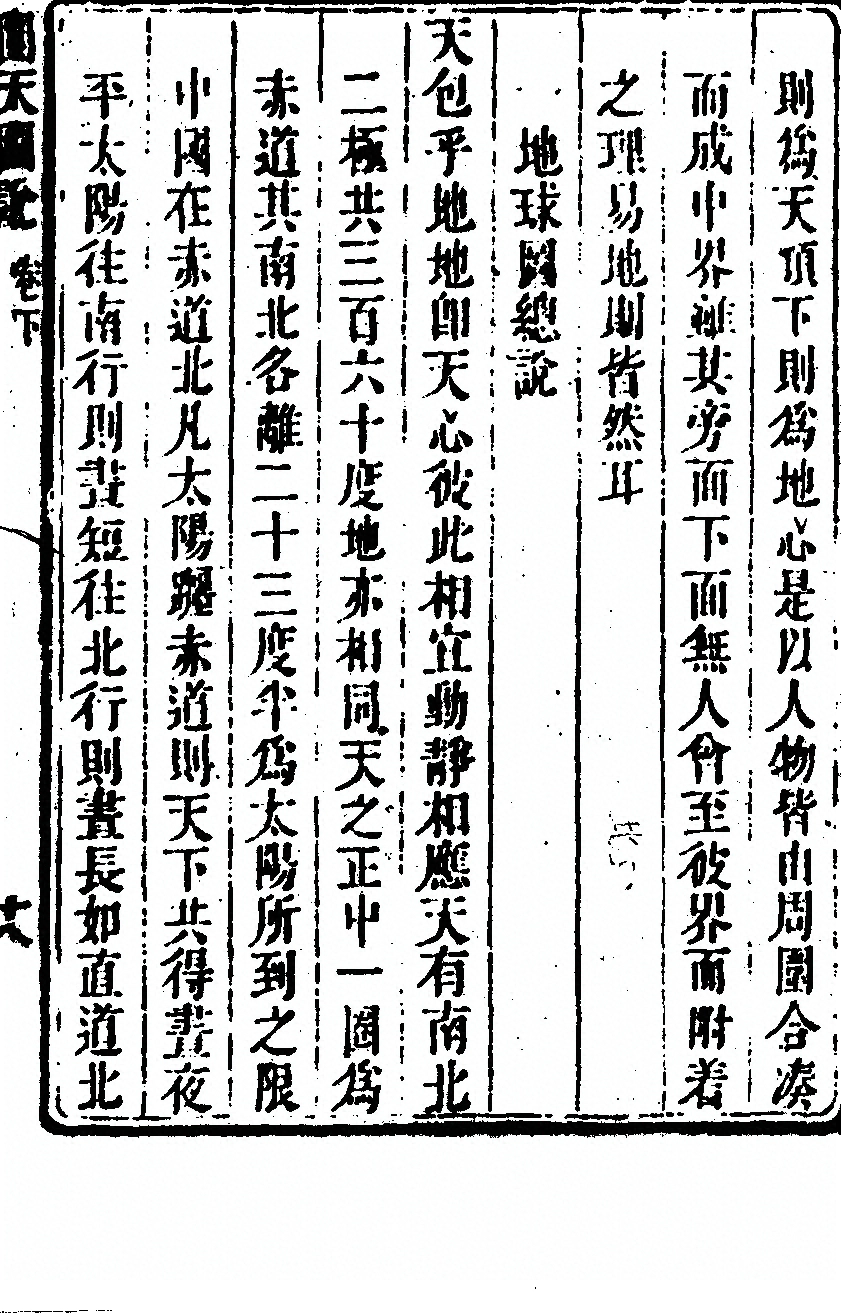 則為天頂下則為地心是以人物皆由周圍合湊
而成中界離其旁面下面無人曾至彼界而附着
之理易地則皆然耳
地球圖總說
天包乎地地即天心彼此相宜動靜相應天有南北
二極共三百六十度地亦相同天之正中一圈為
赤道其南北各離二十三度半為太陽所到之限
中國在赤道北凡太陽躔赤道則天下共得晝夜
平太陽往南行則晝短往北行則晝長如直道北
圜天圖說 卷下